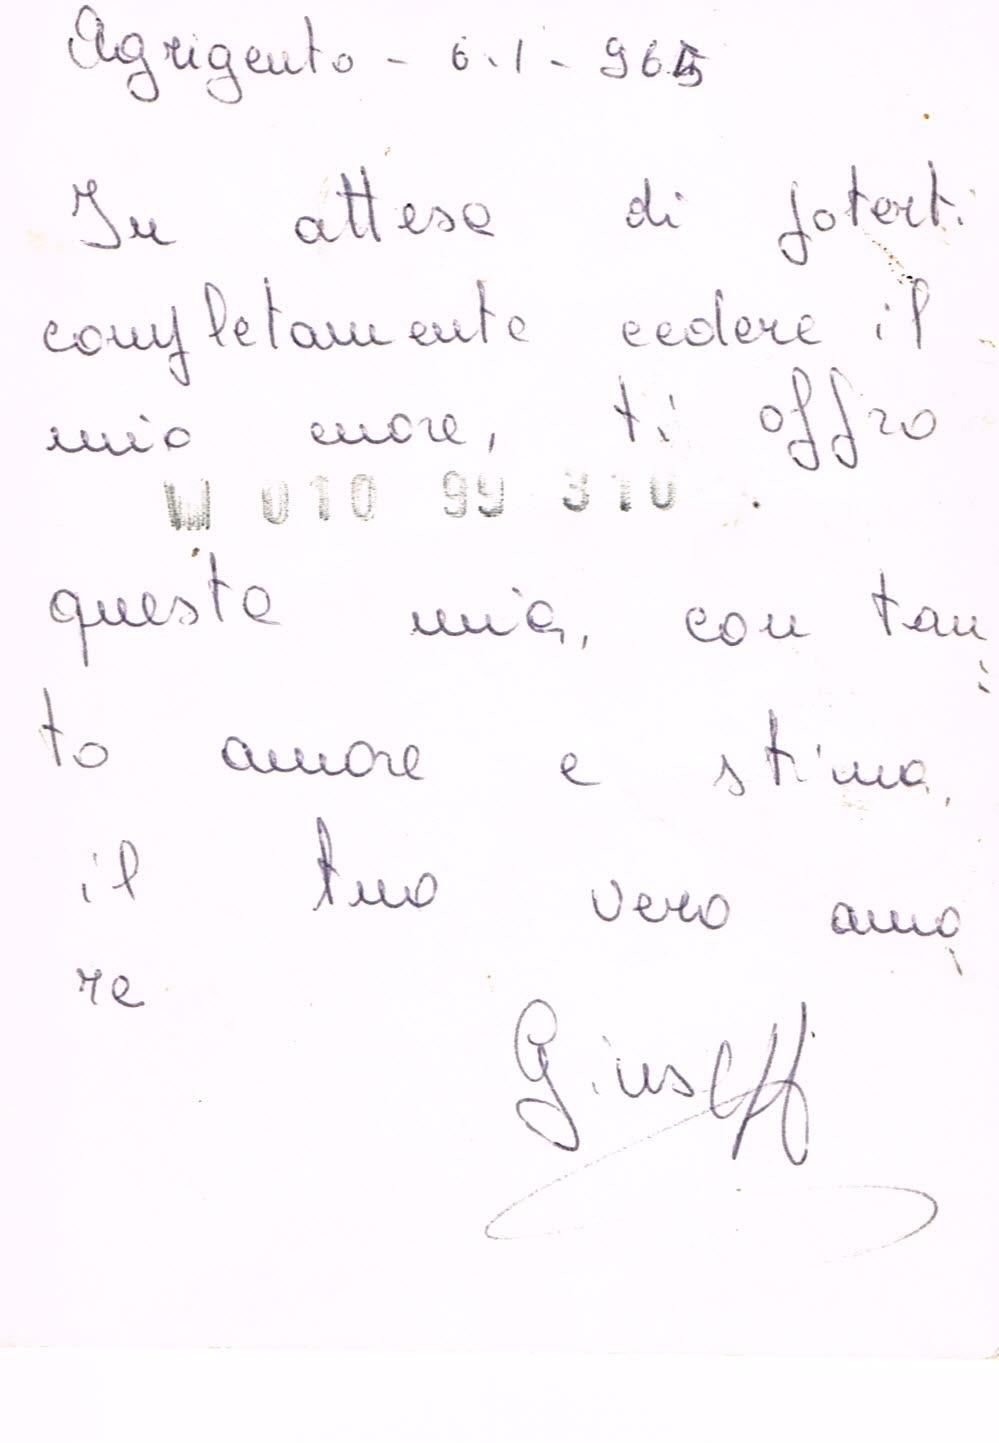 Agrigento - 6.1 - 965
In attesa di poterti
completamente cedere il
mio cuore, ti offro
W 010 99 310
questa mia, con tan
to amore e stima,
il tuo vero amo
re
Giuseppe